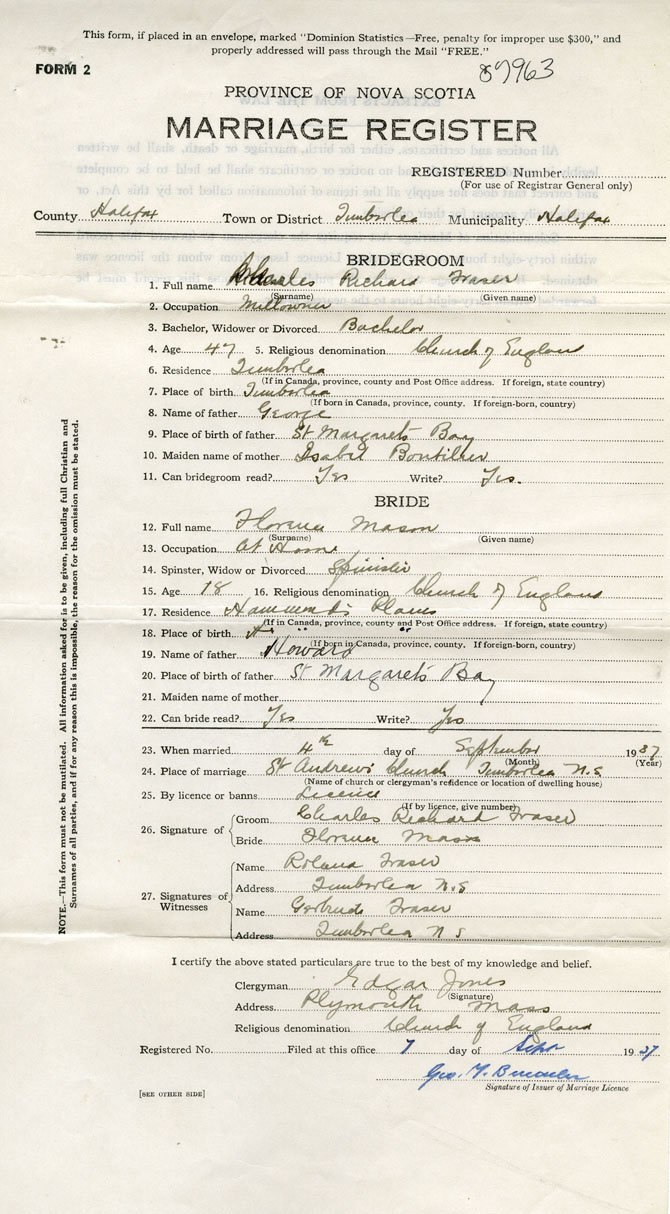 This form, if placed in an envelope, marked "Dominion Statistics—Free, penalty for improper use $300," and
properly addressed will pass through the Mail "FREE."
FORM 2
87963
PROVINCE OF NOVA SCOTIA
MARRIAGE REGISTER
REGISTERED Number
(For use of Registrar General only)
County Halifax Town or District Timberlea Municipality Halifax
BRIDEGROOM
1. Full name Charles Richard Fraser
(Surname) (Given name)
2. Occupation Millowner
3. Bachelor, Widower or Divorced Bachelor
4. Age 47 5. Religious denomination Church of England
6. Residence Timberlea
(If in Canada, province, county and Post Office address. If foreign, state country)
7. Place of birth Timberlea
(If born in Canada, province, county. If foreign-born, country)
8. Name of father George
9. Place of birth of father St Margaret's Bay
10. Maiden name of mother Isabel Boutilier
11. Can bridegroom read? Yes Write? Yes.
BRIDE
12. Full name Florence Mason
(Surname) (Given name)
13. Occupation At Home
14. Spinster, Widow or Divorced Spinister
15. Age 18 16. Religious denomination Church of England
17. Residence Hammonds Plains
(If in Canada, province, county and Post Office address. If foreign, state country)
18. Place of birth " "
(If born in Canada, province, county. If foreign-born, country)
19. Name of father Howard
20. Place of birth of father St Margaret's Bay
21. Maiden name of mother
22. Can bride read? Yes Write? Yes
23. When married 4th day of September 1937
(Month) (Year)
24. Place of marriage St Andrew's Church Timberlea N.S
(Name of church or clergyman's residence or location of dwelling house)
25. By licence or banns Licence
(If by licence, give number)
26. Signature of Groom Charles Richard Fraser
Bride Florence Mason
27. Signatures of Witnesses
Name Roland Fraser
Address Timberlea N.S
Name Gertrude Fraser
Address Timberlea N S
NOTE.—This form must not be mutilated. All information asked for is to be given, including full Christian and
Surnames of all parties, and if for any reason this is impossible, the reason for the omission must be stated.
I certify the above stated particulars are true to the best of my knowledge and belief.
Clergyman Edgar Jones
(Signature)
Address Plymouth Mass
Religious denomination Church of England
Registered No. Filed at this office 7 day of Sept 1937
Geo.
Signature of Issuer of Marriage Licence
[SEE OTHER SIDE]